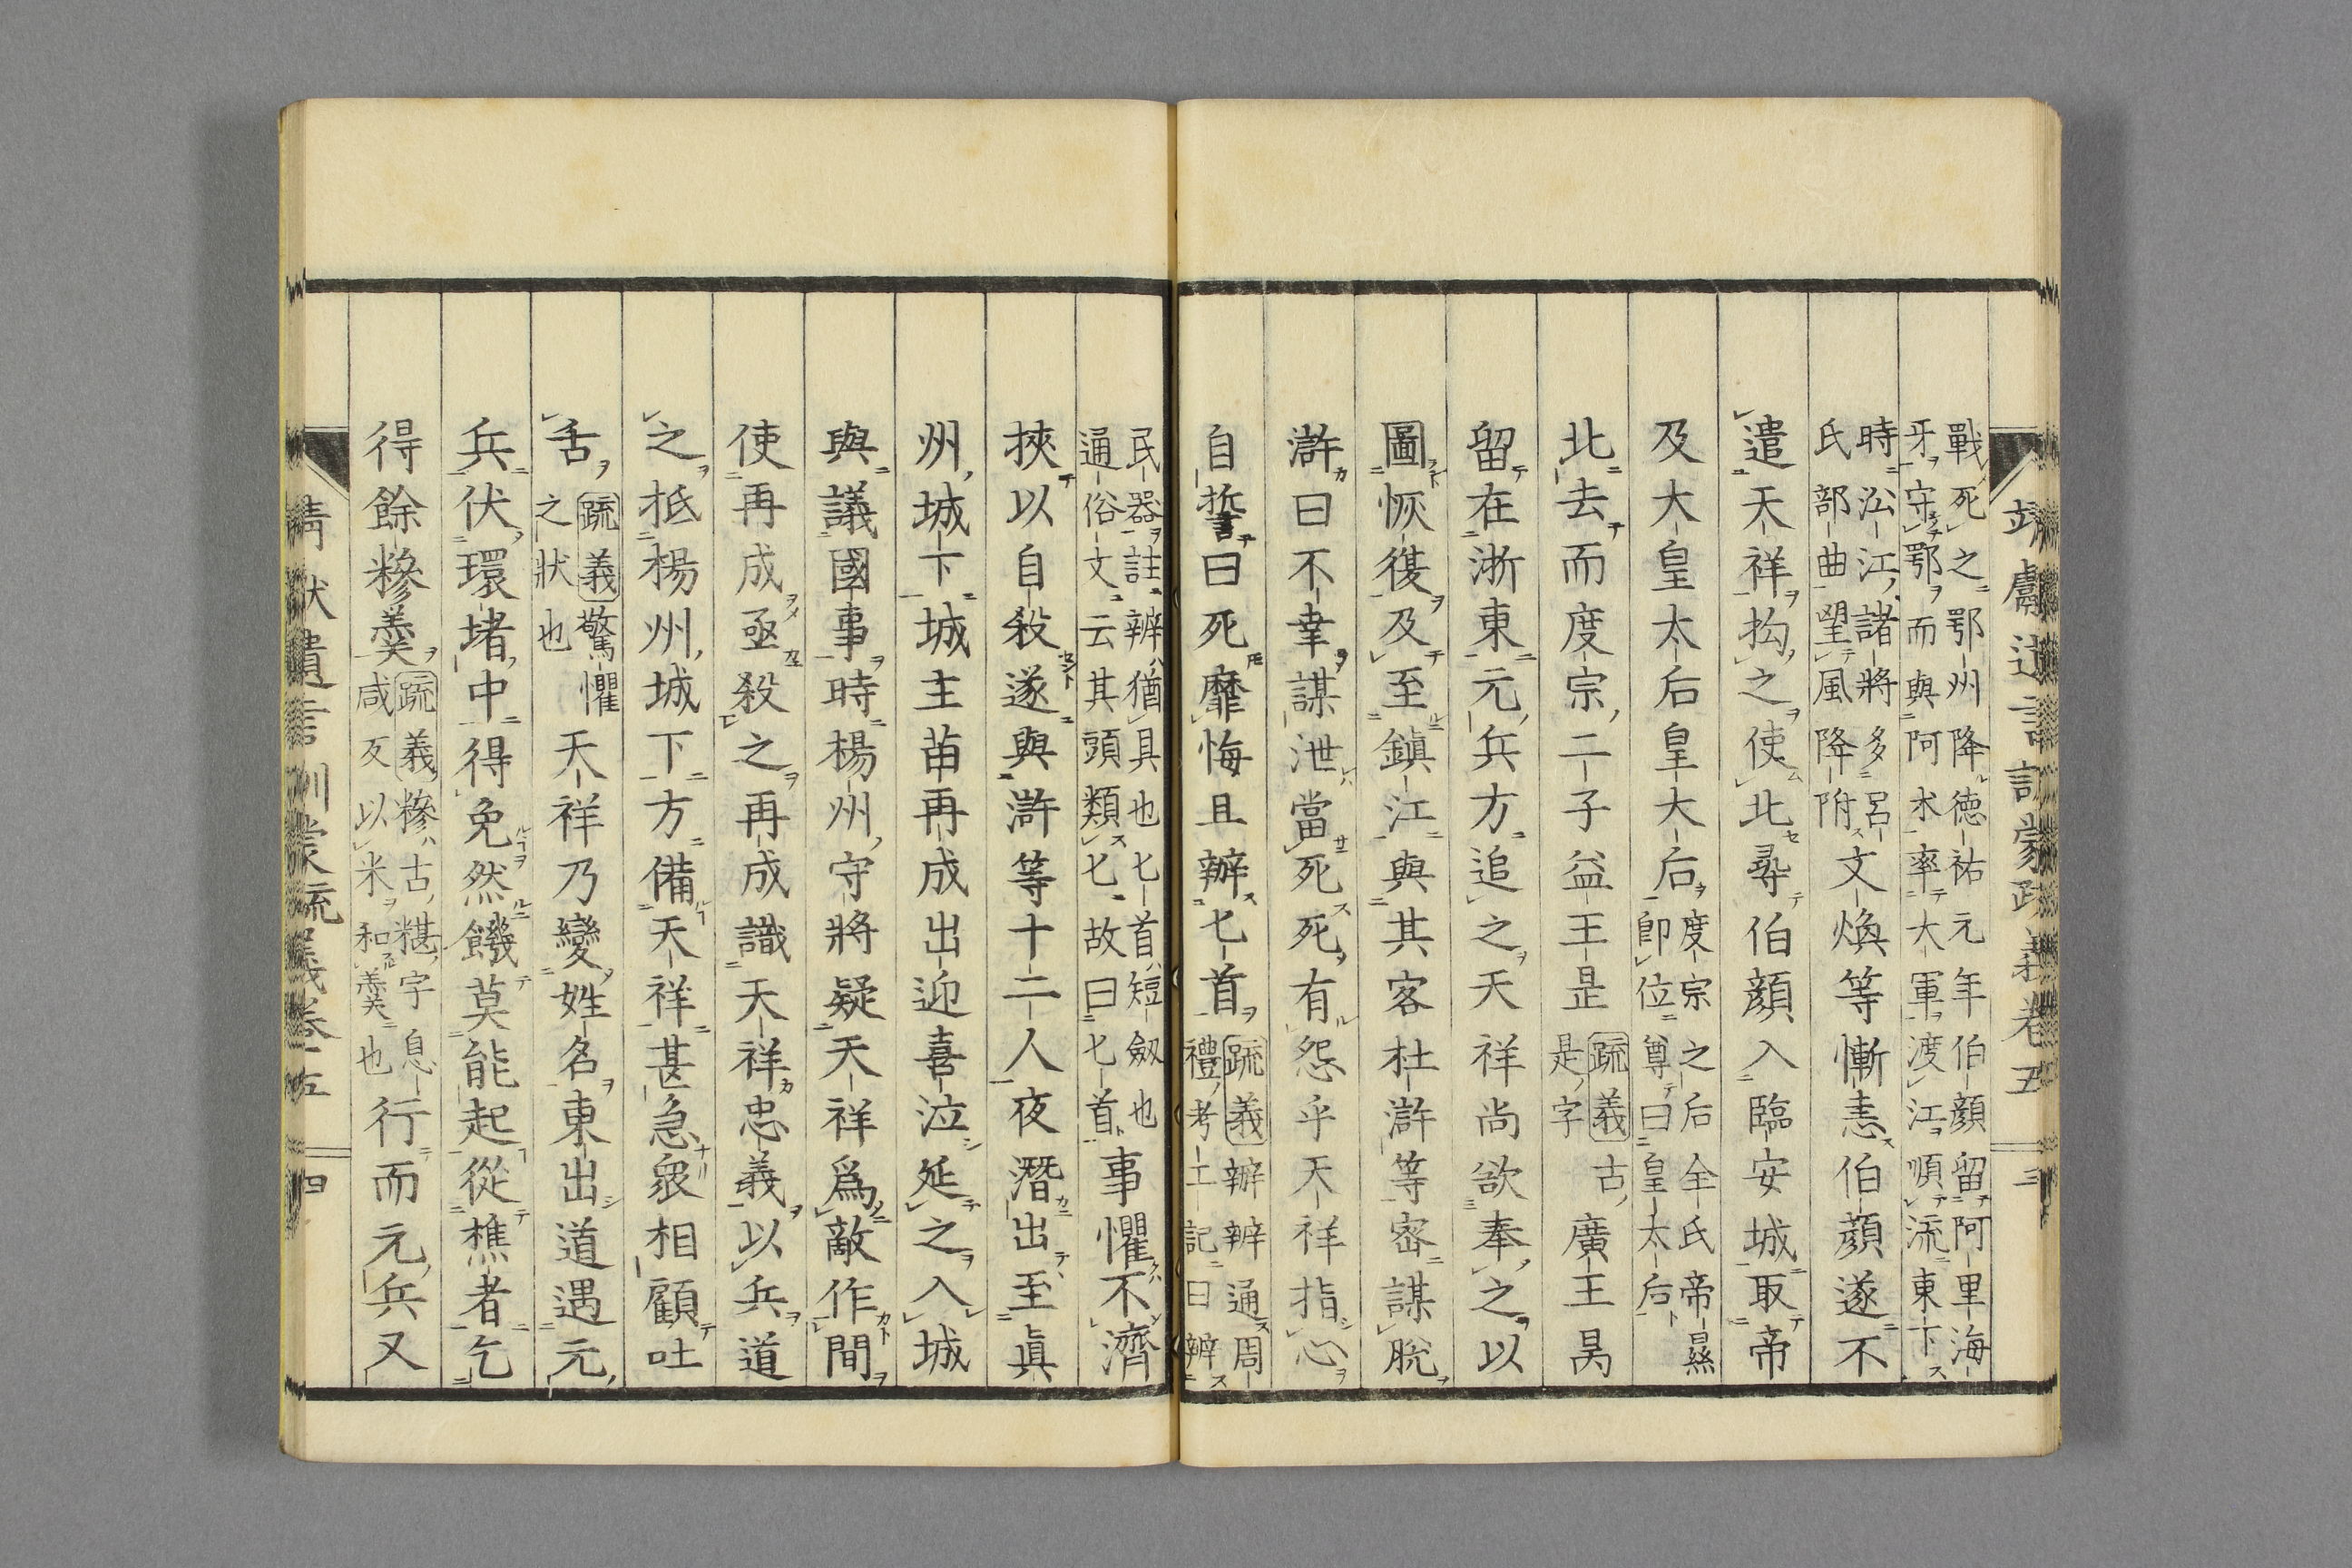 戰死之鄂州降德祐元年伯顏留阿里海
牙守鄂而與阿朮率大軍渡江順流東下
時沿江諸將多呂
氏部曲望風降附
文煥等慚恚伯顏遂不
遣天祥拘之使北尋伯顏入臨安城取帝
及大皇太后皇大后
度宗之后全氏帝㬎
即位尊曰皇太后
北去而度宗二子益王昰
疏義古
是字
廣王昺
留在浙東元兵方追之天祥尚欲奉之以
圖恢復及至鎮江與其客杜滸等密謀脫
滸曰不幸謀泄當死死有怨乎天祥指心
自誓曰死靡悔且辦匕首
疏義辦辨通周
禮考工記曰辨
民器註辨猶具也匕首短劔也
通俗文云其頭類匕故曰匕首
事懼不濟
挾以自殺遂與滸等十二人夜潛出至眞
州城下城主苗再成出迎喜泣延之入城
與議國事時楊州守將疑天祥爲敵作間
使再成亟殺之再成識天祥忠義以兵道
之抵楊州城下方備天祥甚急衆相顧吐
舌
疏義驚懼
之狀也
天祥乃變姓名東出道遇元
兵伏環堵中得免然饑莫能起從樵者乞
得餘糝羹
疏義糝古糂字息
咸反以米和羹也
行而元兵又
靖獻遺言訓蒙疏義卷五
三
靖獻遺言訓蒙疏義卷五
四